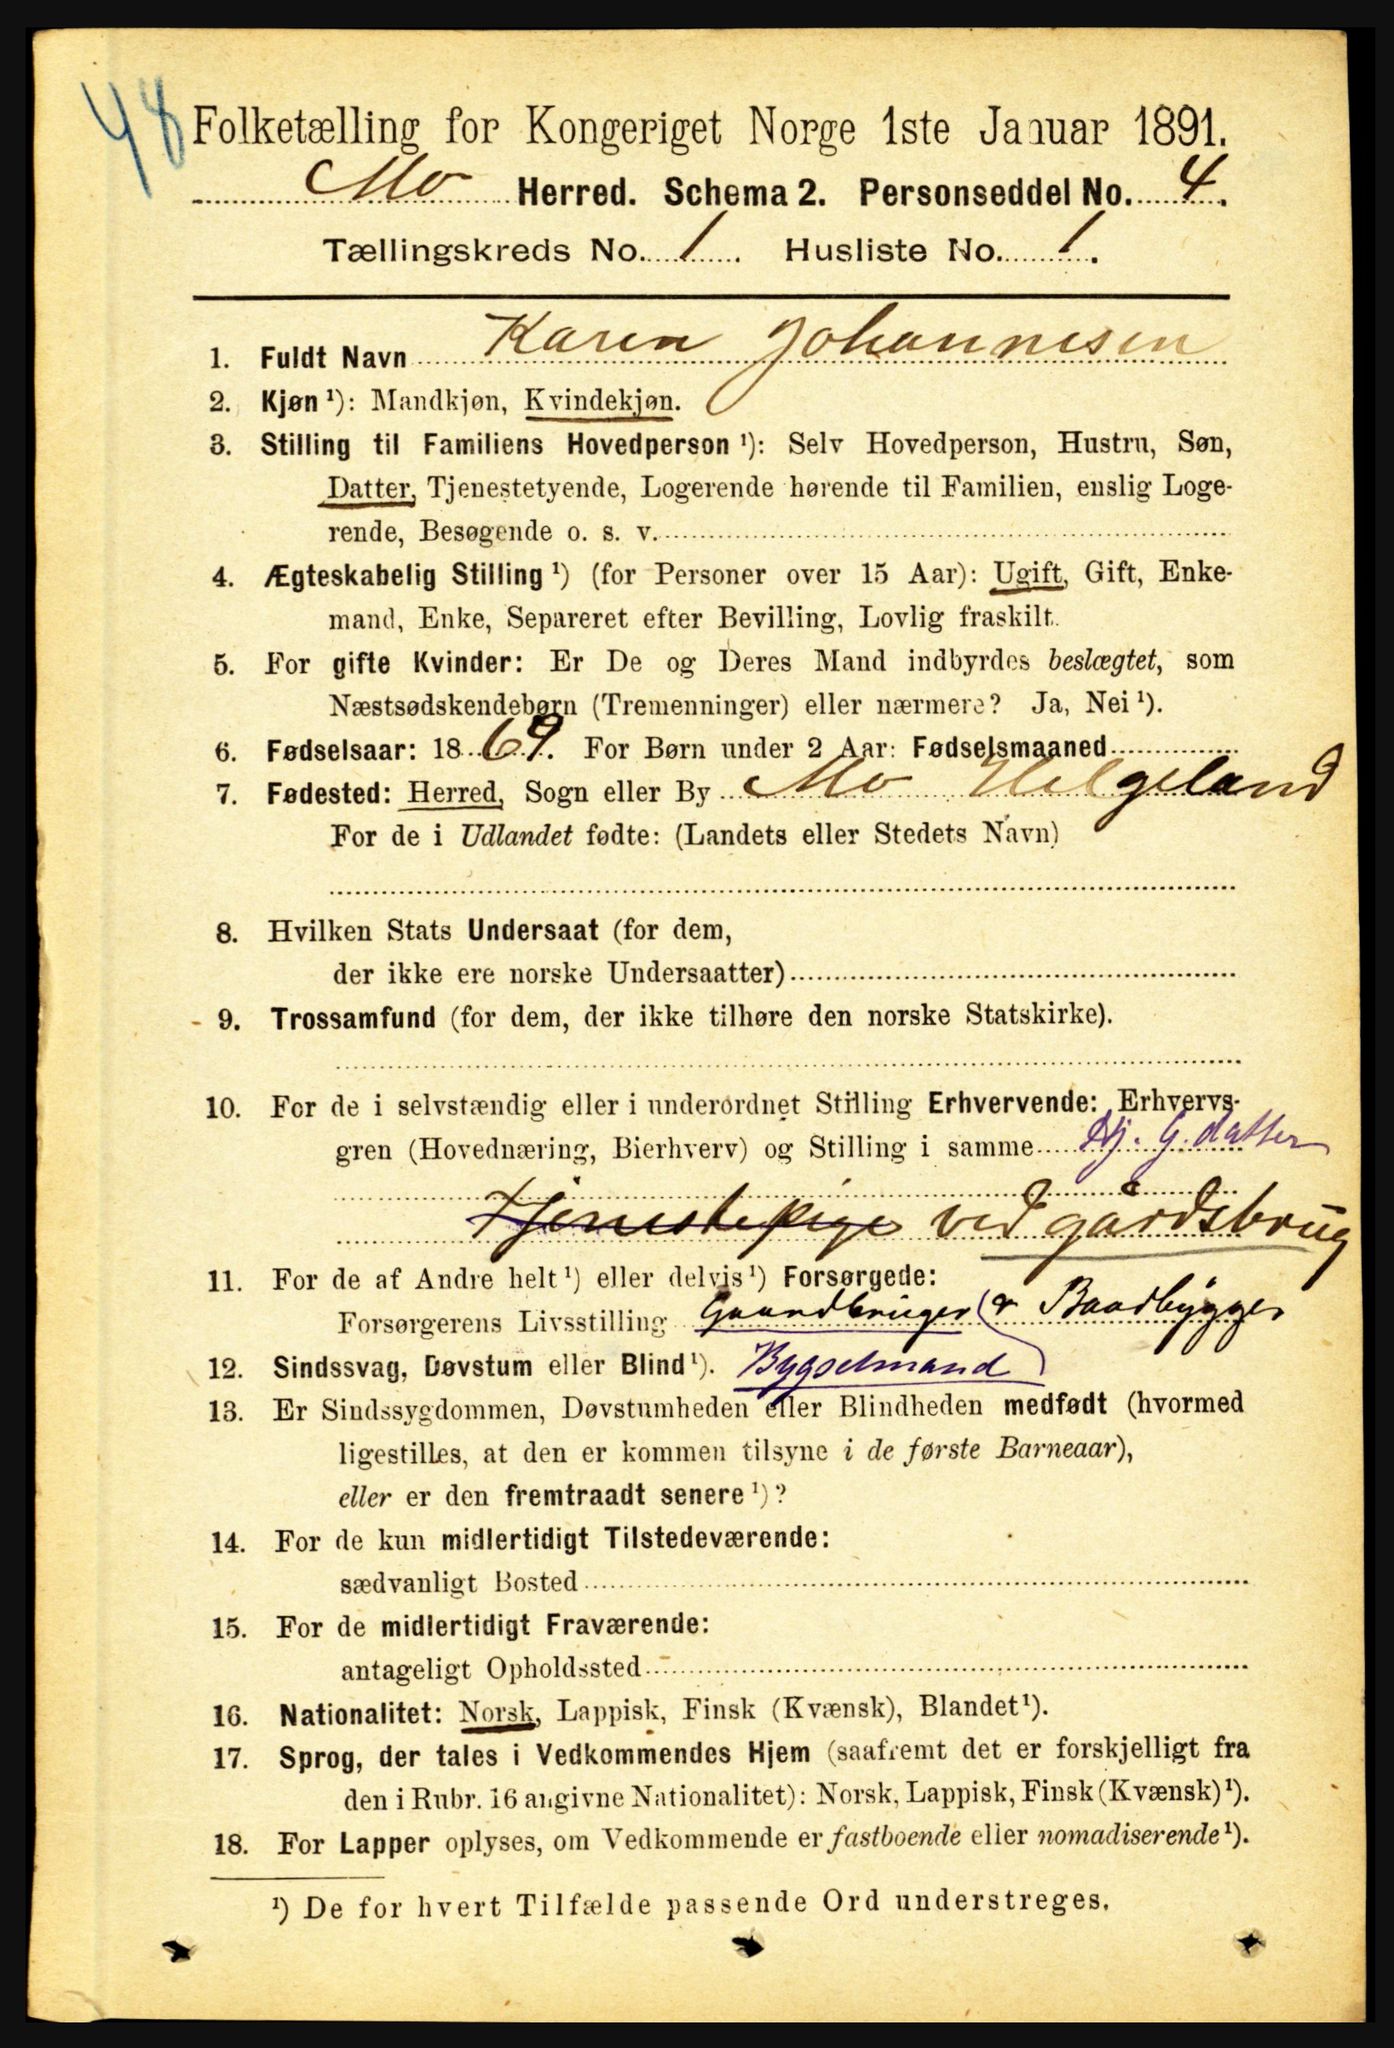 48
Folketælling for Kongeriget Norge 1ste Januar 1891.
Mo Herred. Schema 2. Personseddel No. 4.
Tællingskreds No. 1. Husliste No. 1.
1. Fuldt Navn Karen Johannesen
2. Kjøn ¹): Mandkjøn, Kvindekjøn.
3. Stilling til Familiens Hovedperson ¹): Selv Hovedperson, Hustru, Søn,
Datter, Tjenestetyende, Logerende hørende til Familien, enslig Loge-
rende, Besøgende o. s. v.
4. Ægteskabelig Stilling ¹) (for Personer over 15 Aar): Ugift, Gift, Enke-
mand, Enke, Separeret efter Bevilling, Lovlig fraskilt.
5. For gifte Kvinder: Er De og Deres Mand indbyrdes beslægtet, som
Næstsødskendebørn (Tremenninger) eller nærmere? Ja, Nei ¹).
6. Fødselsaar: 1869. For Børn under 2 Aar: Fødselsmaaned
7. Fødested: Herred, Sogn eller By Mo Helgeland
For de i Udlandet fødte: (Landets eller Stedets Navn)
8. Hvilken Stats Undersaat (for dem,
der ikke ere norske Undersaatter)
9. Trossamfund (for dem, der ikke tilhøre den norske Statskirke).
10. For de i selvstændig eller i underordnet Stilling Erhvervende: Erhvervs-
gren (Hovednæring, Bierhverv) og Stilling i samme Hj. G. datter
Tjenestepige ved gårdsbrug
11. For de af Andre helt ¹) eller delvis ¹) Forsørgede:
Forsørgerens Livsstilling Gaardbruger & Baadbygger
12. Sindssvag, Døvstum eller Blind ¹). Bygselmand
13. Er Sindssygdommen, Døvstumheden eller Blindheden medfødt (hvormed
ligestilles, at den er kommen tilsyne i de første Barneaar),
eller er den fremtraadt senere ¹)?
14. For de kun midlertidigt Tilstedeværende:
sædvanligt Bosted
15. For de midlertidigt Fraværende:
antageligt Opholdssted
16. Nationalitet: Norsk, Lappisk, Finsk (Kvænsk), Blandet ¹).
17. Sprog, der tales i Vedkommendes Hjem (saafremt det er forskjelligt fra
den i Rubr. 16 angivne Nationalitet): Norsk, Lappisk, Finsk (Kvænsk) ¹).
18. For Lapper oplyses, om Vedkommende er fastboende eller nomadiserende ¹).
¹) De for hvert Tilfælde passende Ord understreges.